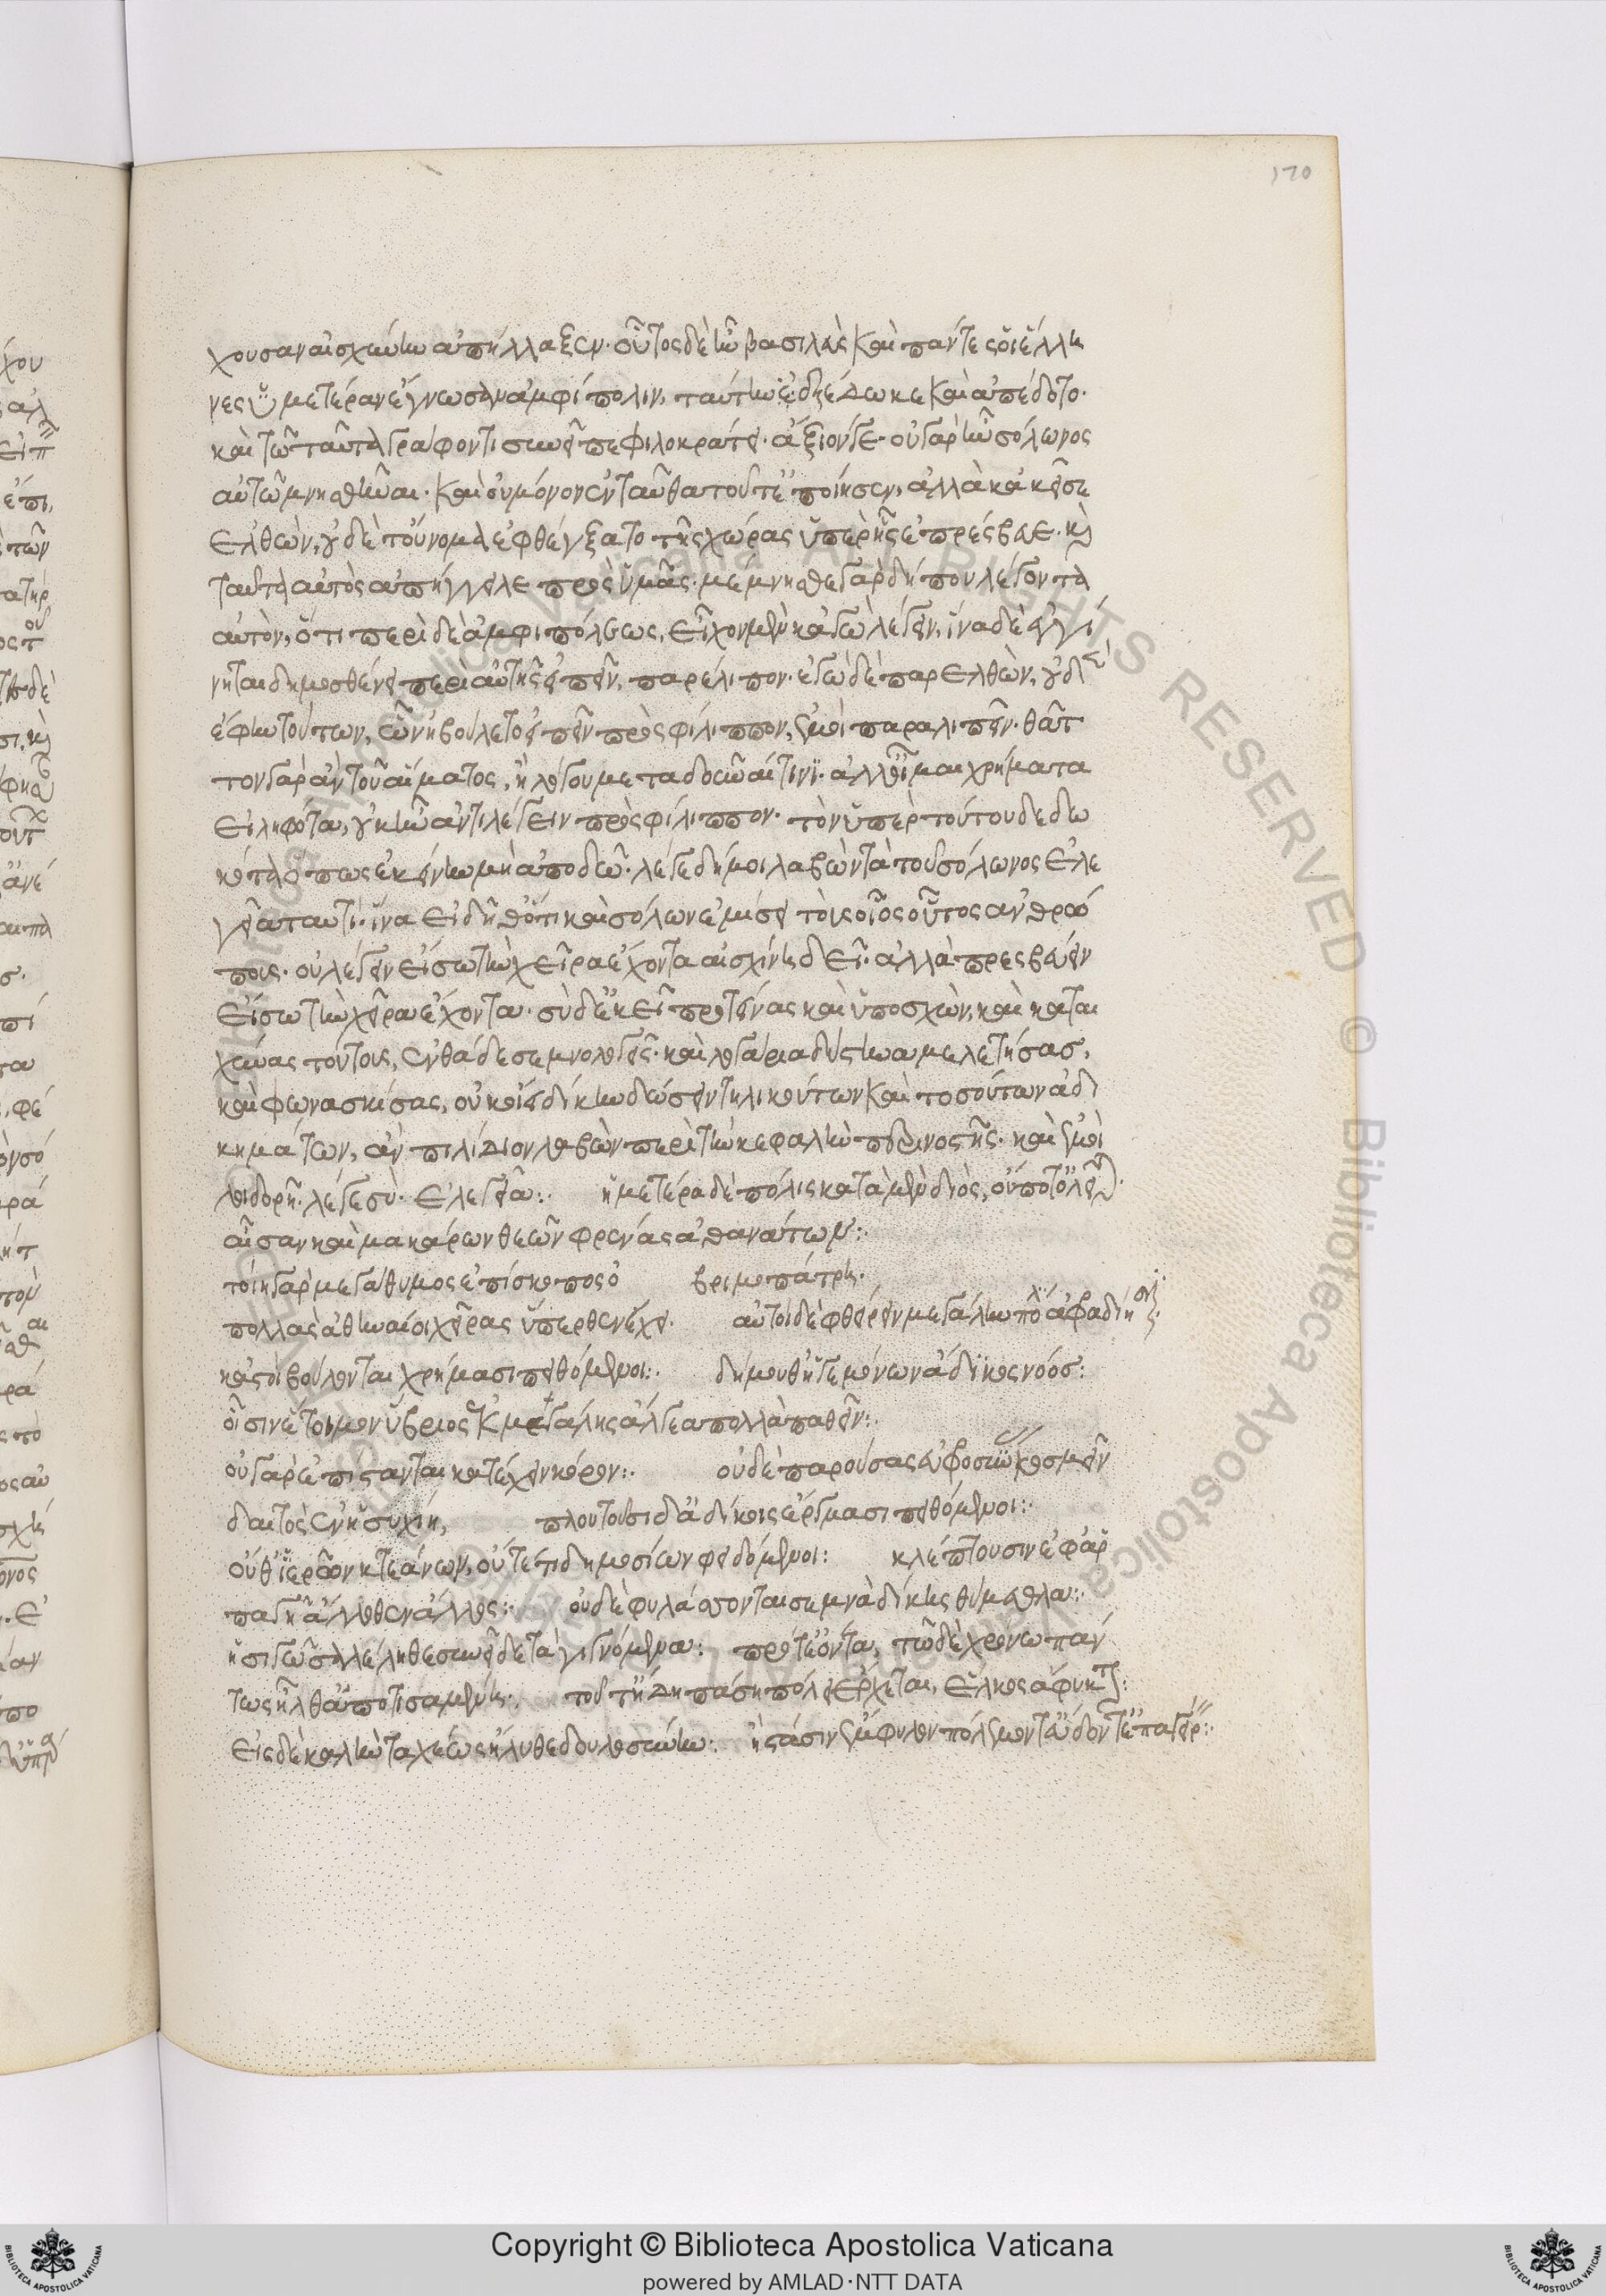 170
χουσαν αἰσχύνην ἀπήλλαξεν· οὗτος δὲ ἣν βασιλεὺς καὶ πάντες οἱ ἕλλη
νες ὑμετέραν ἔγνωσαν ἀμφίπολιν, ταύτην ἐξέδωκε καὶ ἀπέδοτο·
καὶ τῶ ταῦτα γράφοντι συνεῖπε φιλοκράτει· ἄξιόν γε· οὐ γὰρ ἦν σόλωνος
αὐτῶ μνησθῆναι· καὶ οὐ μόνον ἐνταῦθα τοῦτ' ἐποίησεν, ἀλλὰ κἀκεῖσε
ἐλθὼν, οὐδὲ τοὔνομα ἐφθέγξατο τῆς χώρας ὑπὲρ ἧς ἐπρέσβευε· καὶ
ταῦτα αὐτὸς ἀπήγγειλε πρὸς ὑμᾶς· μέμνησθε γὰρ δήπου λέγοντα
αὐτὸν, ὅτι περὶ δὲ ἀμφιπόλεως, εἶχον μὲν κἀγὼ λέγειν, ἵνα δὲ ἐγγέ
νηται δημοσθένει περὶ αὐτῆς εἰπεῖν, παρέλιπον· ἐγὼ δὲ παρελθὼν, οὐδὲν
ἔφην τούτων, ὧν ἠβούλετο εἰπεῖν πρὸς φίλιππον, ἐμοὶ παραλιπεῖν· θᾶτ
τον γὰρ ἂν τοῦ αἵματος, ἢ λόγου μεταδοῦναί τινι· ἀλλ' οἶμαι χρήματα
εἰληφότα, οὐκ ἦν ἀντιλέγειν πρὸς φίλιππον· τὸν ὑπὲρ τούτου δεδω
κότα ὅπως ἐκείνην μὴ ἀποδῶ· λέγε δή μοι λαβὼν τὰ τοῦ σόλωνος ἐλε
γεῖα ταυτί· ἵνα εἰδῆθ' ὅτι καὶ σόλων ἐμίσει τοὺς οἷος οὗτος ἀνθρώ
πους· οὐ λέγειν εἴσω τὴν χεῖρα ἔχοντα αἰσχίνη δεῖ· ἀλλὰ πρεσβεύειν
εἴσω τὴν χεῖρα ἔχοντα· σὺ δ' ἐκεῖ προτείνας καὶ ὑποσχὼν, καὶ καται
χύνας τούτους, ἐνθάδε σεμνολογεῖς· καὶ λογάρια δύστηνα μελετήσας,
καὶ φωνασκήσας, οὐκ οἴει δίκην δώσειν τηλικούτων καὶ τοσούτων ἀδι
κημάτων, ἂν πιλίδιον λαβὼν περὶ τὴν κεφαλὴν περινοστῆς· καὶ ἐμοὶ
λοιδορῆ· λέγε σύ· ἐλεγεῖα:· ἡμετέρα δὲ πόλις κατὰ μὲν διὸς, οὔποτ' ὀλεῖται
αἶσαν καὶ μακάρων θεῶν φρένας ἀθανάτων:·
τοίη γὰρ μεγάθυμος ἐπίσκοπος ὀ βριμοπάτρη·
παλλὰς ἀθηναίη χεῖρας ὕπερθεν ἔχει· αὐτοὶ δὲ φθείρειν μεγάλην πόλιν ἀφραδίησιν·
ἀστοὶ βούλονται χρήμασι πειθόμενοι:· δήμου θ' ἡγεμόνων ἄδικος νόος:
οἷσιν ἕτοιμον ὕβριος ἐκ μεγάλης ἄλγεα πολλὰ παθεῖν:·
οὐ γὰρ ἐπίστανται κατέχειν κόρον:· οὐδὲ παρούσας εὐφροσύνας κοσμεῖν
δαιτὸς ἐν ἡσυχίη, πλουτοῦσι δ' ἀδίκοις ἔργμασι πειθόμενοι:·
οὔθ' ἱερῶν κτεάνων, οὔτέ τι δημοσίων φειδόμενοι: κλέπτουσιν ἐφ' ἁρ
παγῆ ἄλλοθεν ἄλλος:· οὐδὲ φυλάσσονται σεμνὰ δίκης θέμεθλα:·
ἣ σιγῶσα λέληθε σύνοιδε τὰ γιγνόμενα: πρό τ' ἐόντα, τῶ δὲ χρόνω πάν
τως ἦλθ' ἀποτισαμένη:· τοῦτ' ἤδη πάση πόλει ἔρχεται, ἕλκος ἄφυκτον:
εἰς δὲ κακὴν ταχέως ἤλυθε δουλοσύνην:· ἣ στάσιν ἔμφυλον πόλεμόν τ' εὕδοντ' ἐπεγείρει:·
Copyright © Biblioteca Apostolica Vaticana
powered by AMLAD·NTT DATA